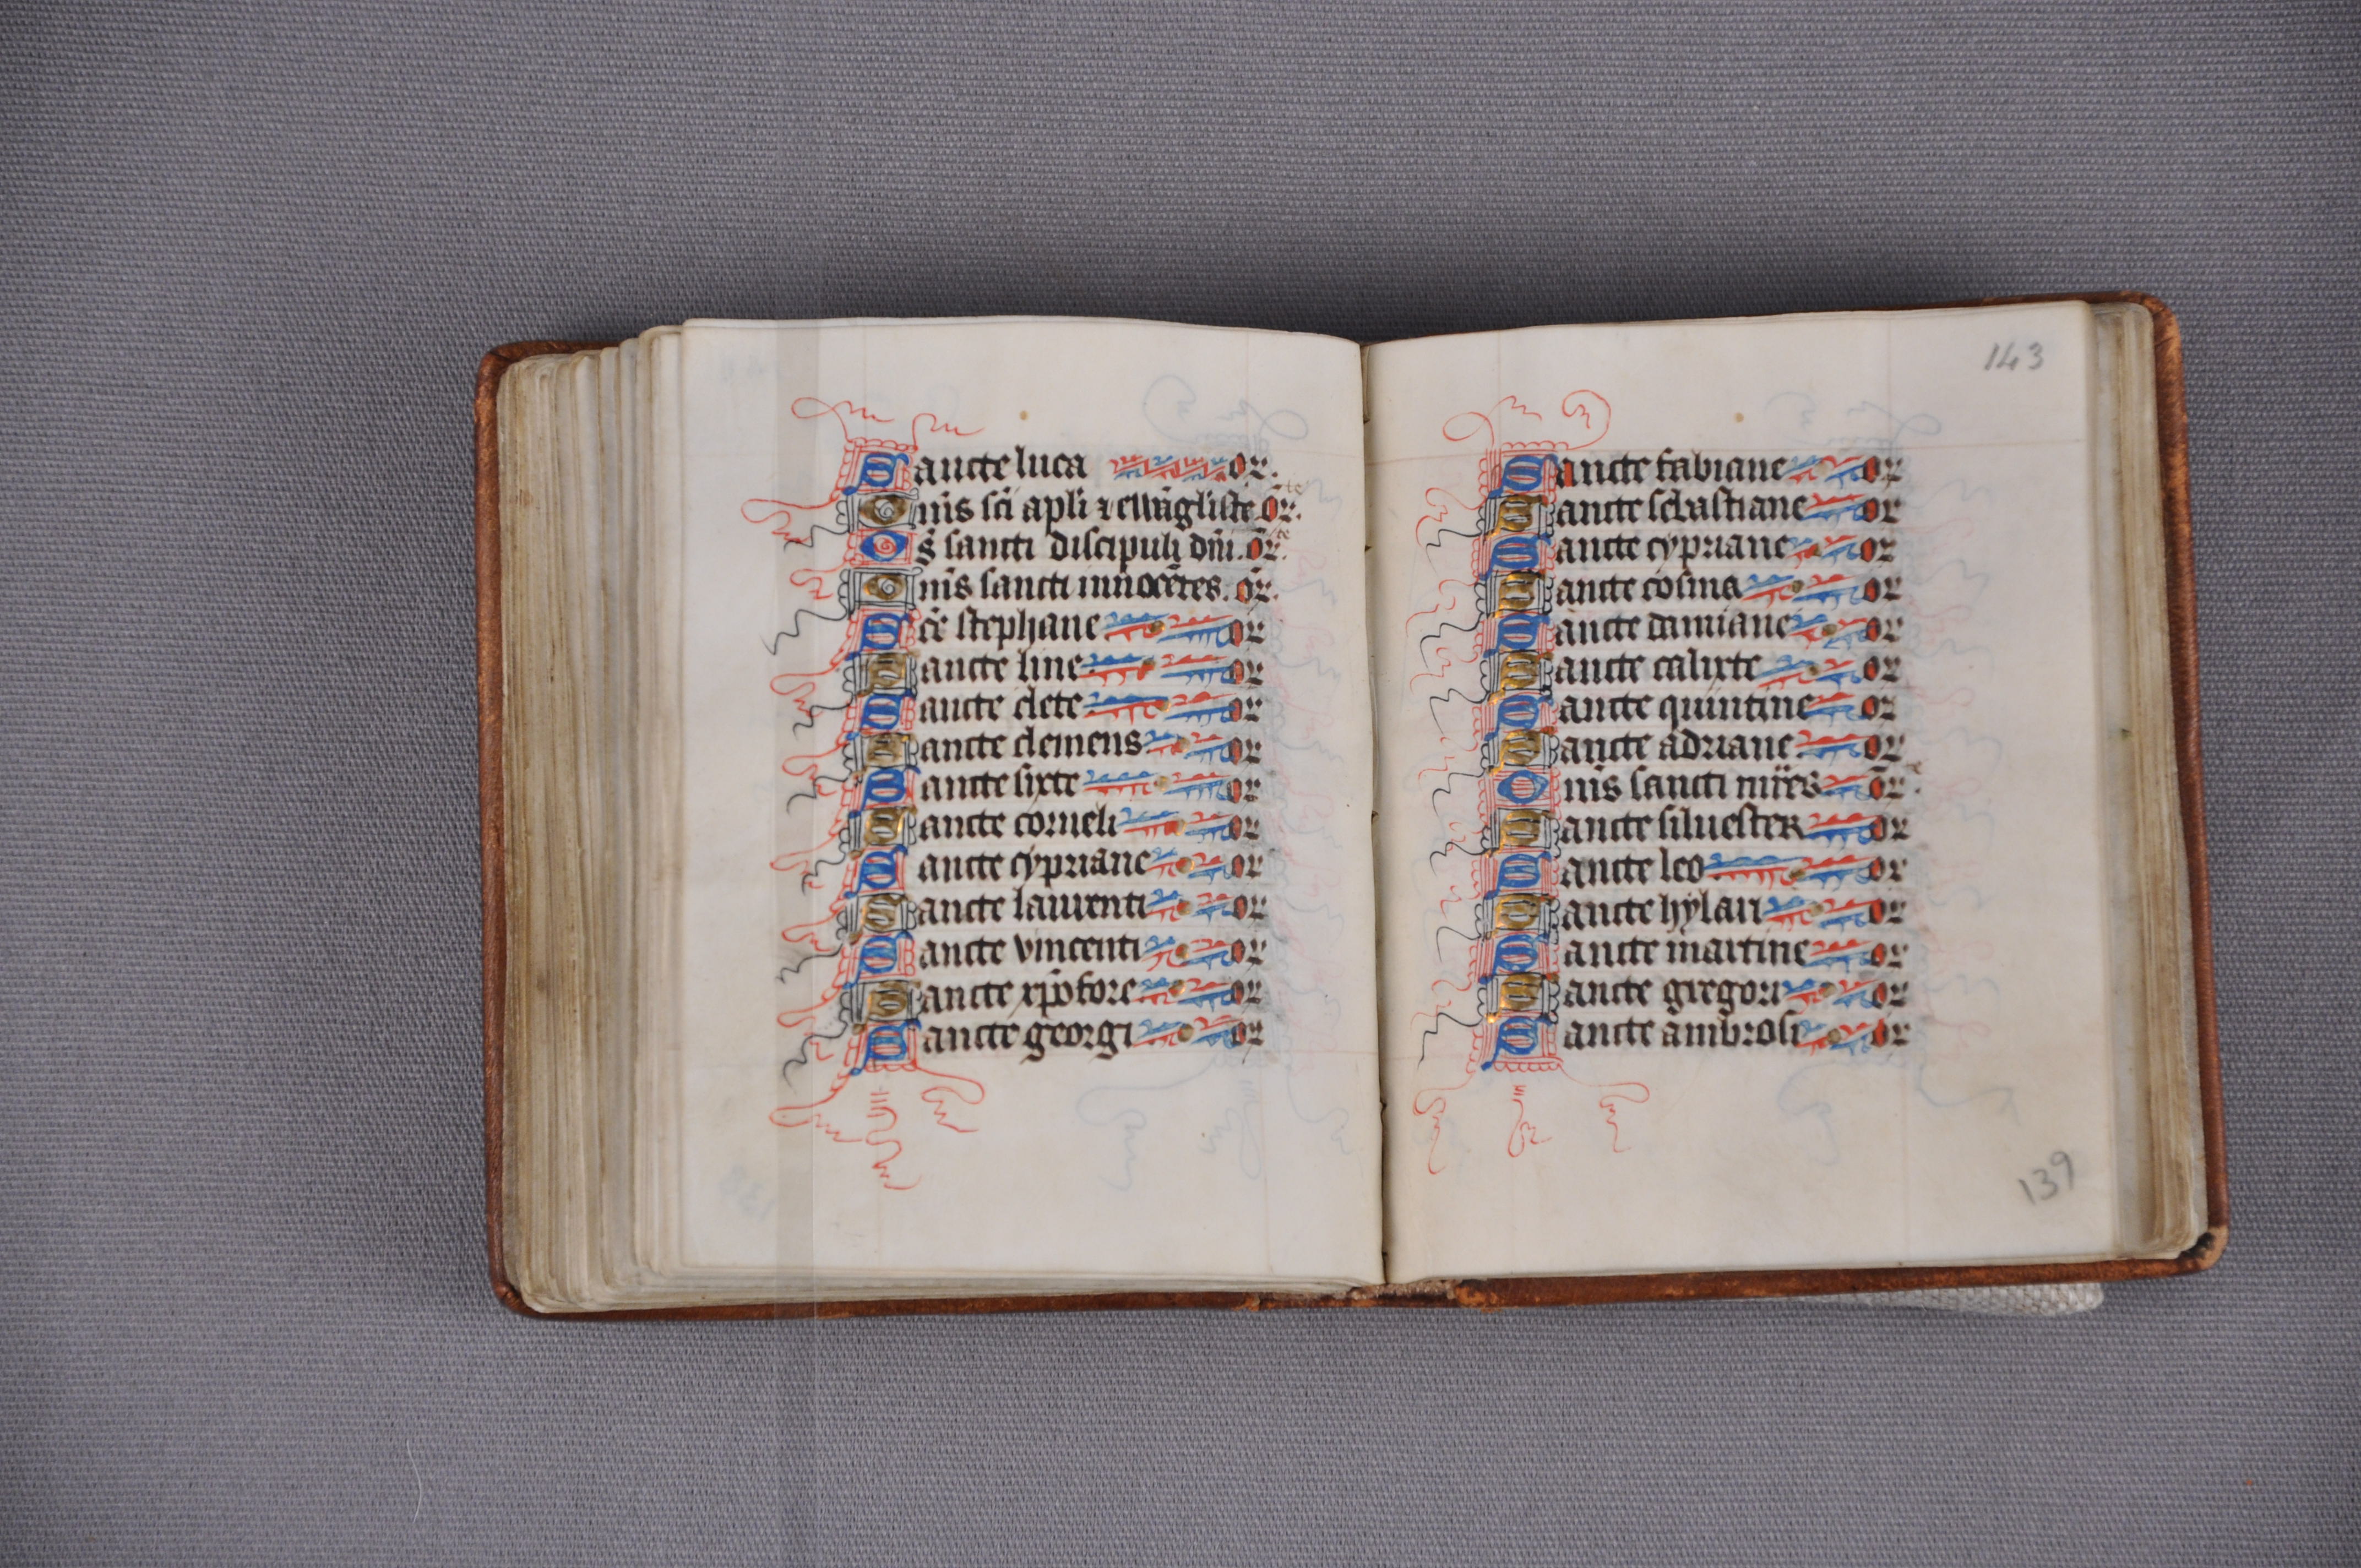 Sancte luca or.
Om̄s sc̄i apl̄i ⁊ ewāgliste or̄.
Os̄ sancti discipuli dn̄i. or̄.
Om̄s sancti innocētes. or̄.
Sc̄e stephane or
Sancte line or
Sancte clete or
Sancte clemens or
Sancte sixte or
Sancte corneli or
Sancte cypriane or
Sancte laurenti or
Sancte vincenti or
Sancte xp̄ofore or
Sancte georgi or
143
Sancte fabiane or
Sancte sebastiane or
Sancte cypriane or
Sancte cosma or
Sancte damiane or
Sancte calixte or
Sancte quintine or
Sancte adriane or
Om̄s sancti mr̄es or̄.
Sancte siluester or
Sancte leo or
Sancte hylari or
Sancte martine or
Sancte gregori or
Sancte ambrosi or
139